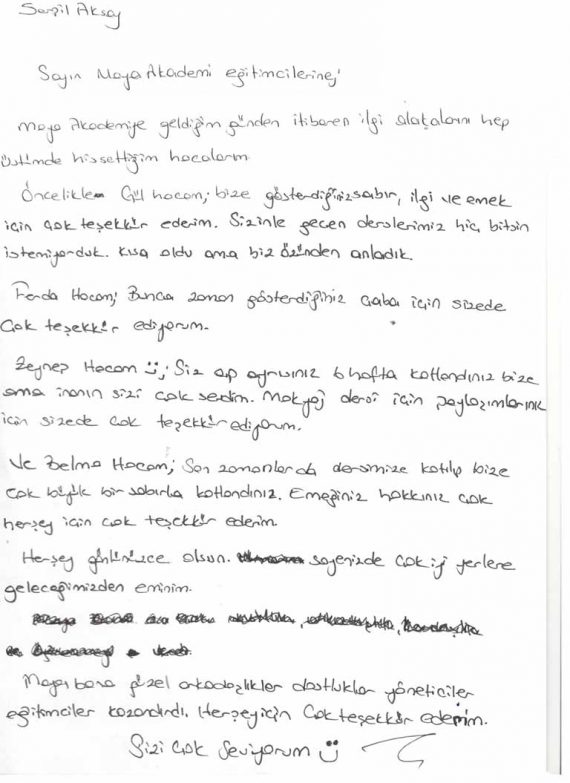 Serpil Aksoy
Sayın Maya Akademi eğitimcilerine;
Maya Akademiye geldiğim günden itibaren ilgi alakalarını hep
üstümde hissettiğim hocalarım
Öncelikle Gül hocam; bize gösterdiğiniz sabır, ilgi ve emek
için çok teşekkür ederim. Sizinle geçen derslerimiz hiç bitsin
istemiyorduk. Kısa oldu ama biz özünden anladık.
Ferda Hocam; Bunca zaman gösterdiğiniz çaba için sizede
çok teşekkür ediyorum.
Zeynep Hocam Ü; Siz ap ayrısınız 6 hafta katlandınız bize
ama inanın sizi çok sevdim. Makyaj dersi için paylaşımlarınız
için sizede çok teşekkür ediyorum.
Ve Belma Hocam; Son zamanlarda dersimize katılıp bize
çok büyük bir sabırla katlandınız. Emeğiniz hakkınız çok
herşey için çok teşekkür ederim.
Herşey gönlünüzce olsun. sayenizde çok iyi yerlere
geleceğimizden eminim.
Maya bana güzel arkadaşlıklar dostluklar yöneticiler
eğitimciler kazandırdı. Herşey için Çok teşekkür ederim.
Sizi çok Seviyorum Ü